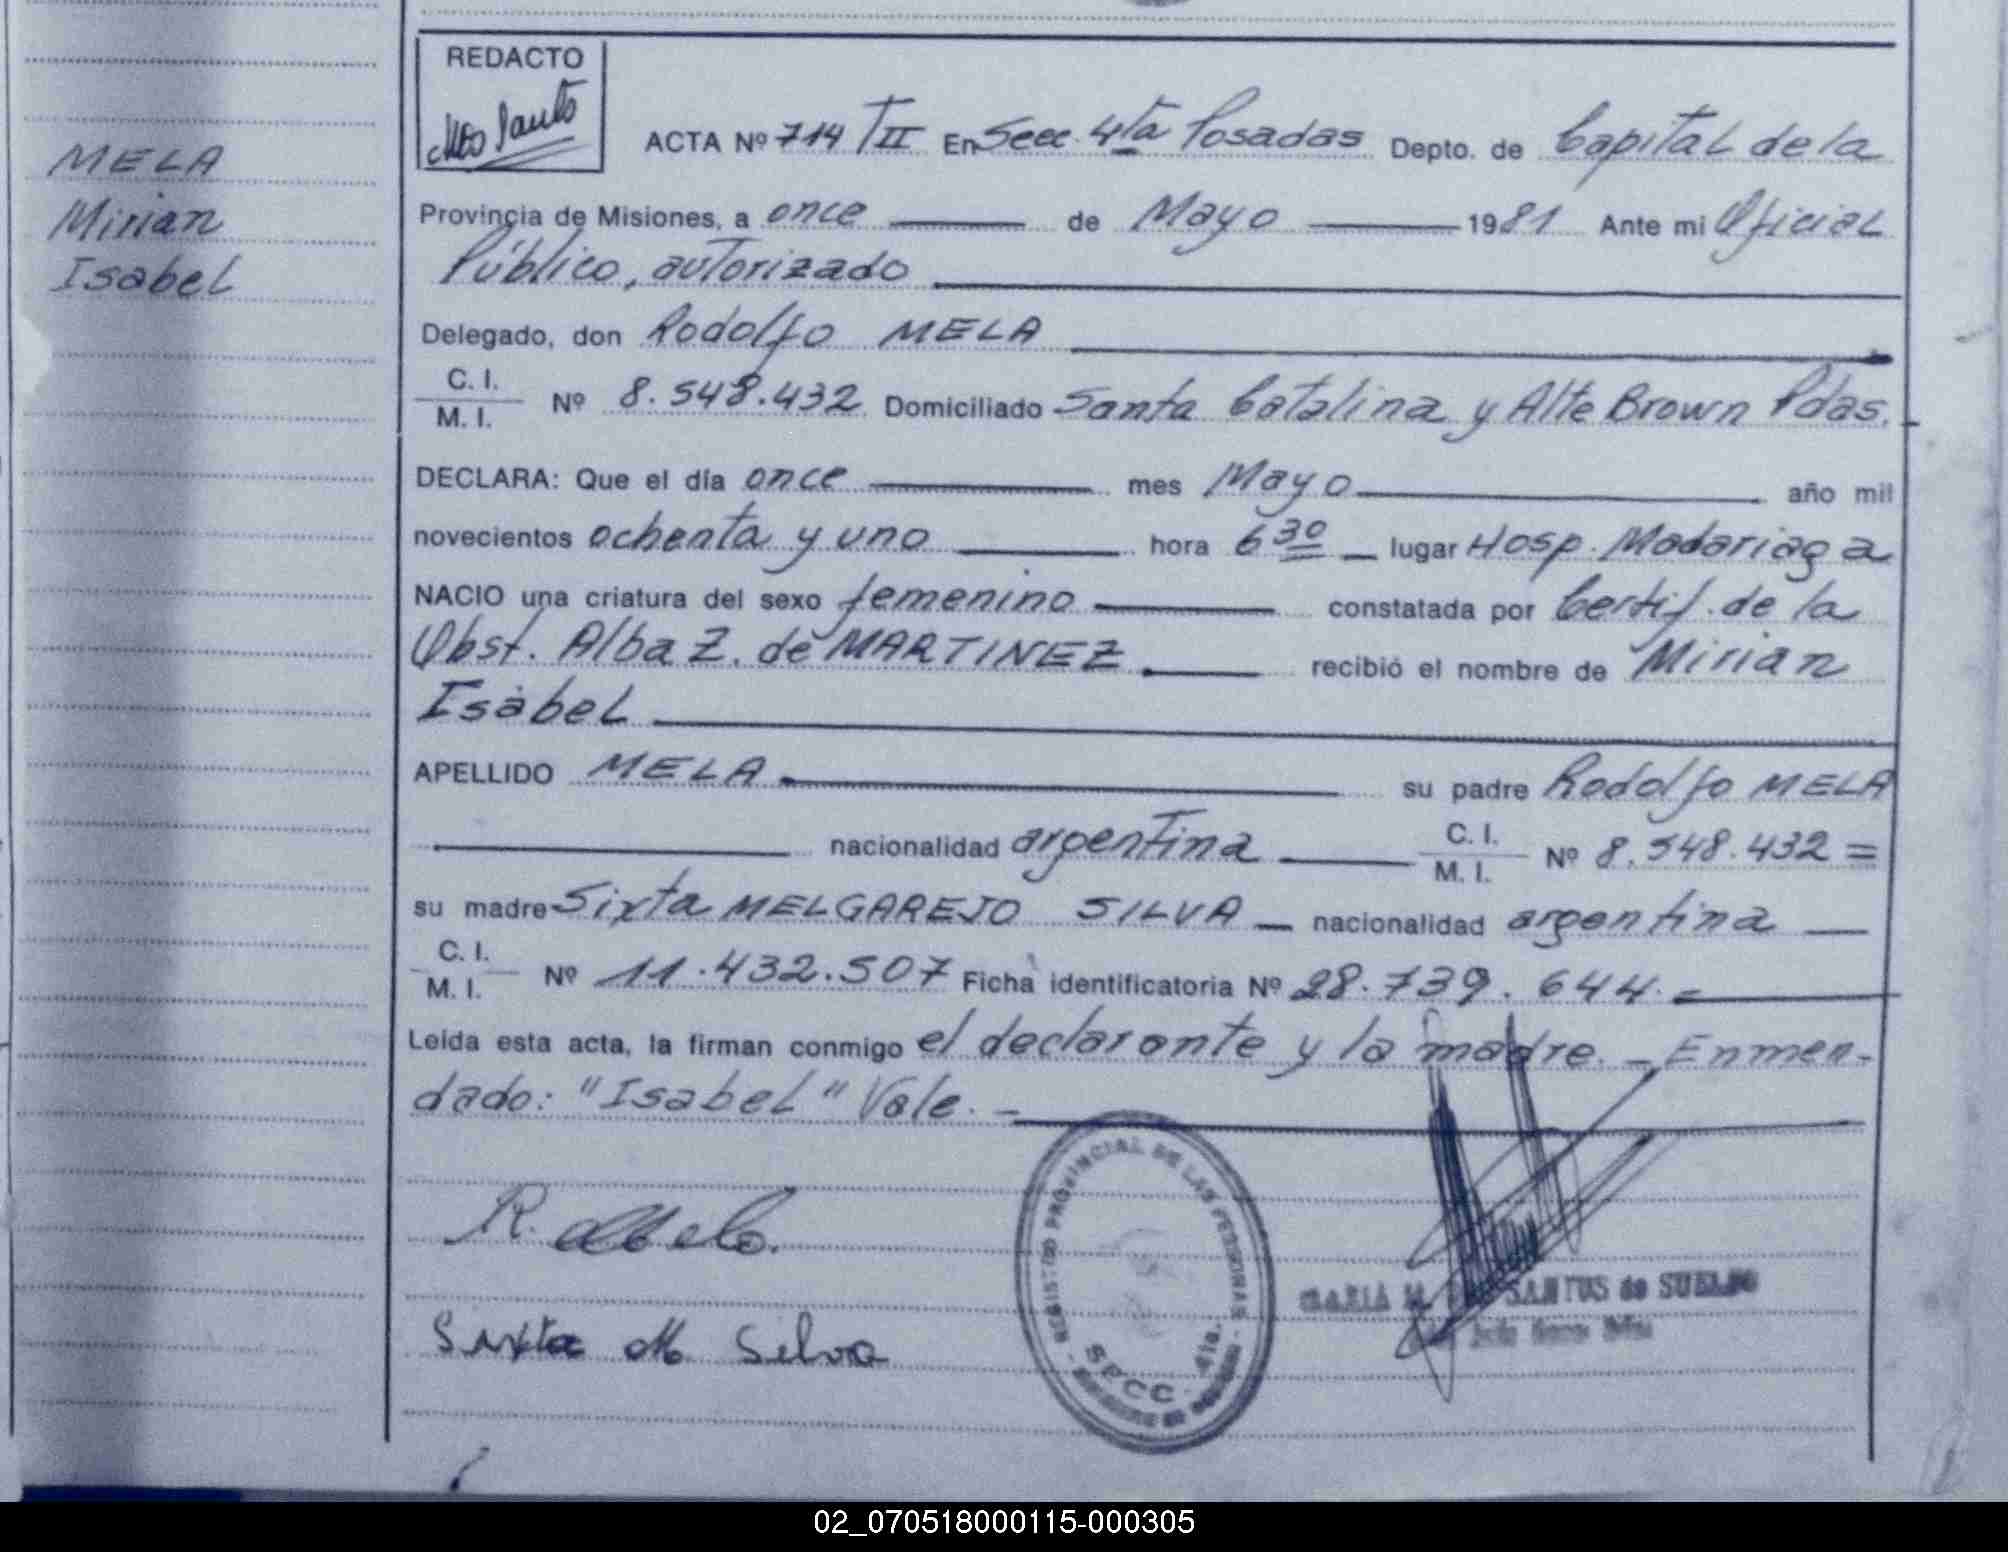 REDACTO
MELA
Mirian
Isabel
ACTA Nº 714 TII En Secc. 4ta Posadas Depto. de Capital de la
Provincia de Misiones, a once de Mayo 1981 Ante mi Oficial
Público, autorizado
Delegado, don Rodolfo MELA
C. I.
M. I. Nº 8.548.432 Domiciliado Santa Catalina y Alte Brown Pdas.
DECLARA: Que el día once mes Mayo año mil
novecientos ochenta y uno hora 6 30 lugar Hosp. Madariaga
NACIO una criatura del sexo femenino constatada por Certif. de la
Obst. Alba Z. de MARTINEZ recibió el nombre de Mirian
Isabel
APELLIDO MELA su padre Rodolfo MELA
nacionalidad argentina C. I. M. I. Nº 8.548.432 =
su madre Sixta MELGAREJO SILVA nacionalidad argentina
C. I.
M. I. Nº 11.432.507 Ficha identificatoria Nº 28.739.644.=
Leída esta acta, la firman conmigo el declarante y la madre. _ Enmen-
dado: "Isabel" Vale. _
R. Mela.
Sixta M Silva
REGISTRO PROVINCIAL DE LAS PERSONAS
SECC. 4ta.
MARIA M. SANTOS de SUELDO
02_070518000115-000305